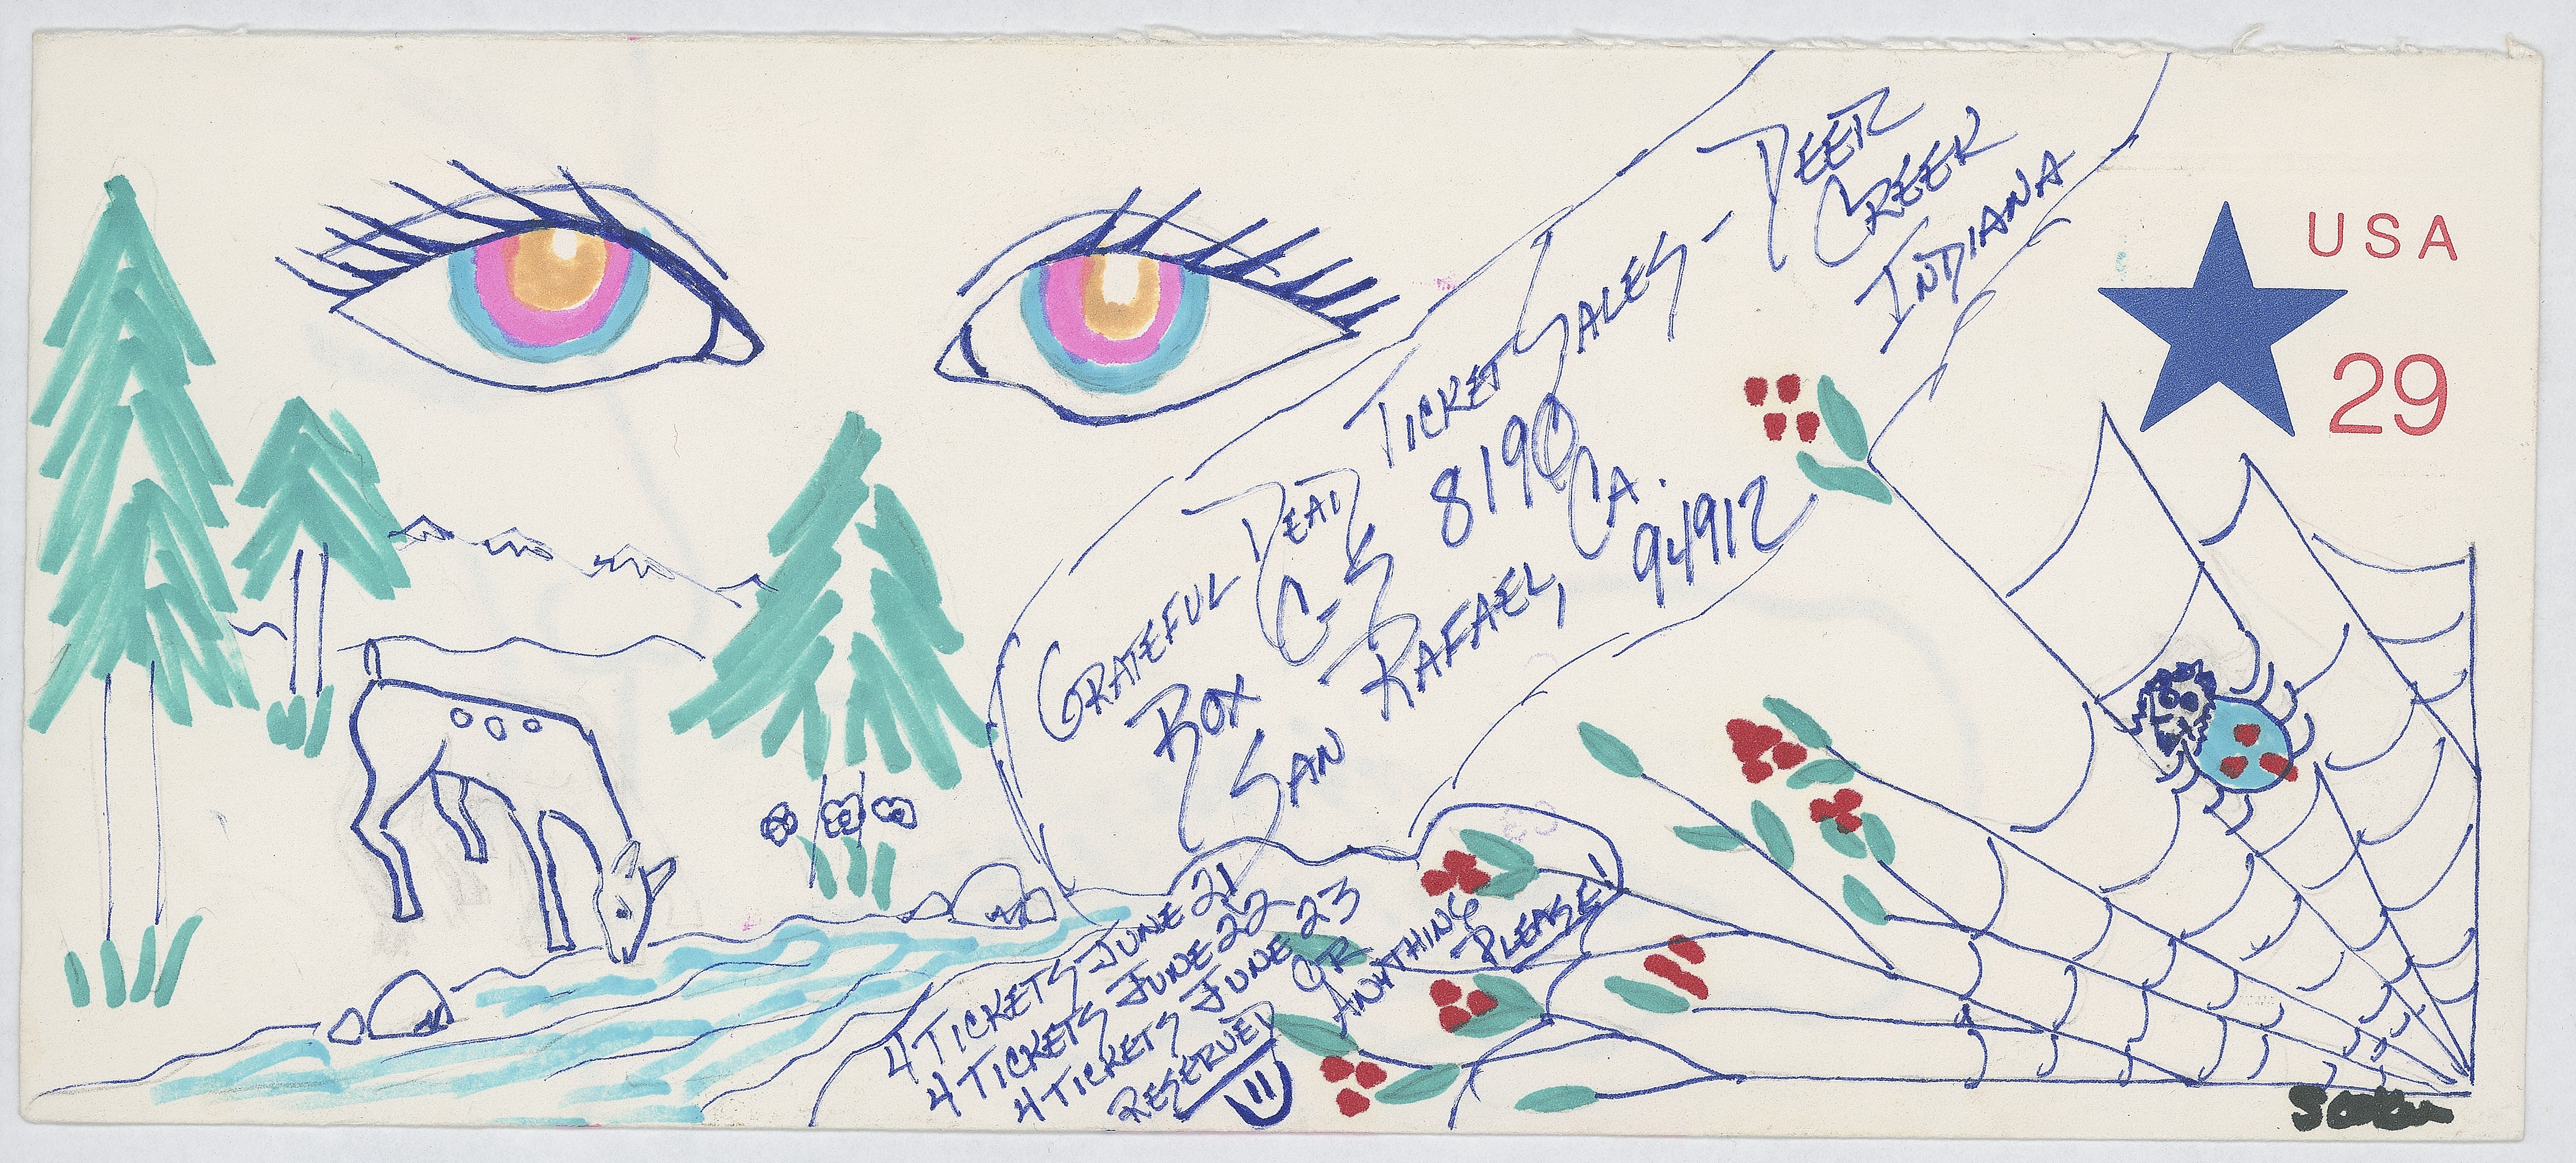 GRATEFUL DEAD TICKET SALES - DEER
CREEK
INDIANA
BOX C-S 8190
SAN RAFAEL, CA.
94912
USA
29
4 TICKETS JUNE 21
4 TICKETS JUNE 22
4 TICKETS JUNE 23
RESERVED OR
ANYTHING
PLEASE!